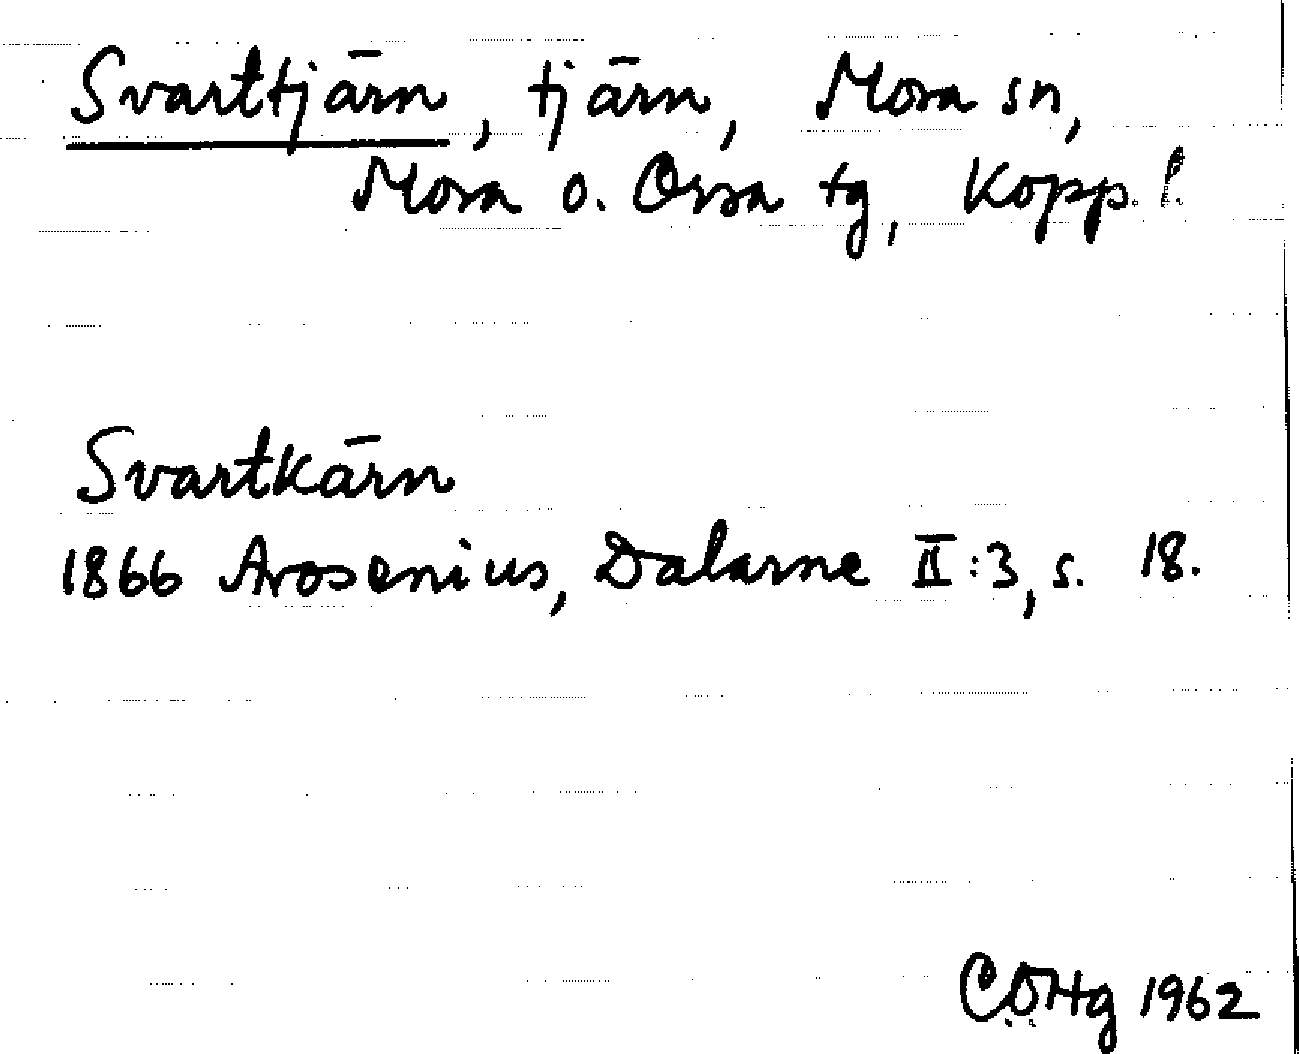 Svarttjärn, tjärn, Mora sn,
Mora o. Orsa tg, Kopp. l.
Svartkärn
1866 Arosenius, Dalarne II:3, s. 18.
1962